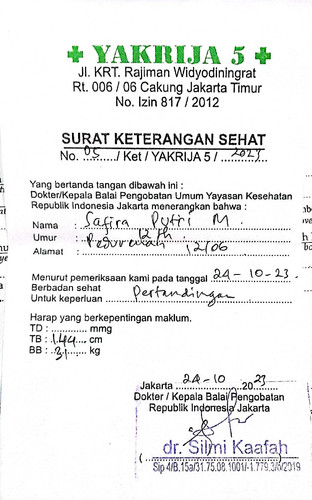 + YAKRIJA 5 +
Jl. KRT. Rajiman Widyodiningrat
Rt. 006 / 06 Cakung Jakarta Timur
No. Izin 817 / 2012
SURAT KETERANGAN SEHAT
No. 05 / Ket / YAKRIJA 5 / 2023
Yang bertanda tangan dibawah ini :
Dokter/Kepala Balai Pengobatan Umum Yayasan Kesehatan
Republik Indonesia Jakarta menerangkan bahwa :
Nama : Safira Putri M.
Umur : 12 th
Alamat : 12/06
Menurut pemeriksaan kami pada tanggal 24-10-23.
Berbadan sehat
Untuk keperluan : Pertandingan
Harap yang berkepentingan maklum.
TD : ............ mmg
TB : 144 cm
BB : 31 kg
Jakarta 24-10 2023
Dokter / Kepala Balai Pengobatan
Republik Indonesia Jakarta
dr. Silmi Kaafah
Sip 4/B.15a/31.75.08.1001/-1.779.3/5/2019